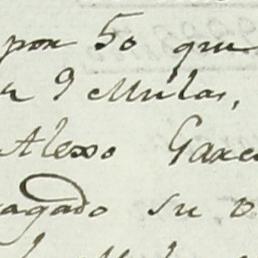 por 50 que
9 Mulas,
Alexo Garc
agado su o